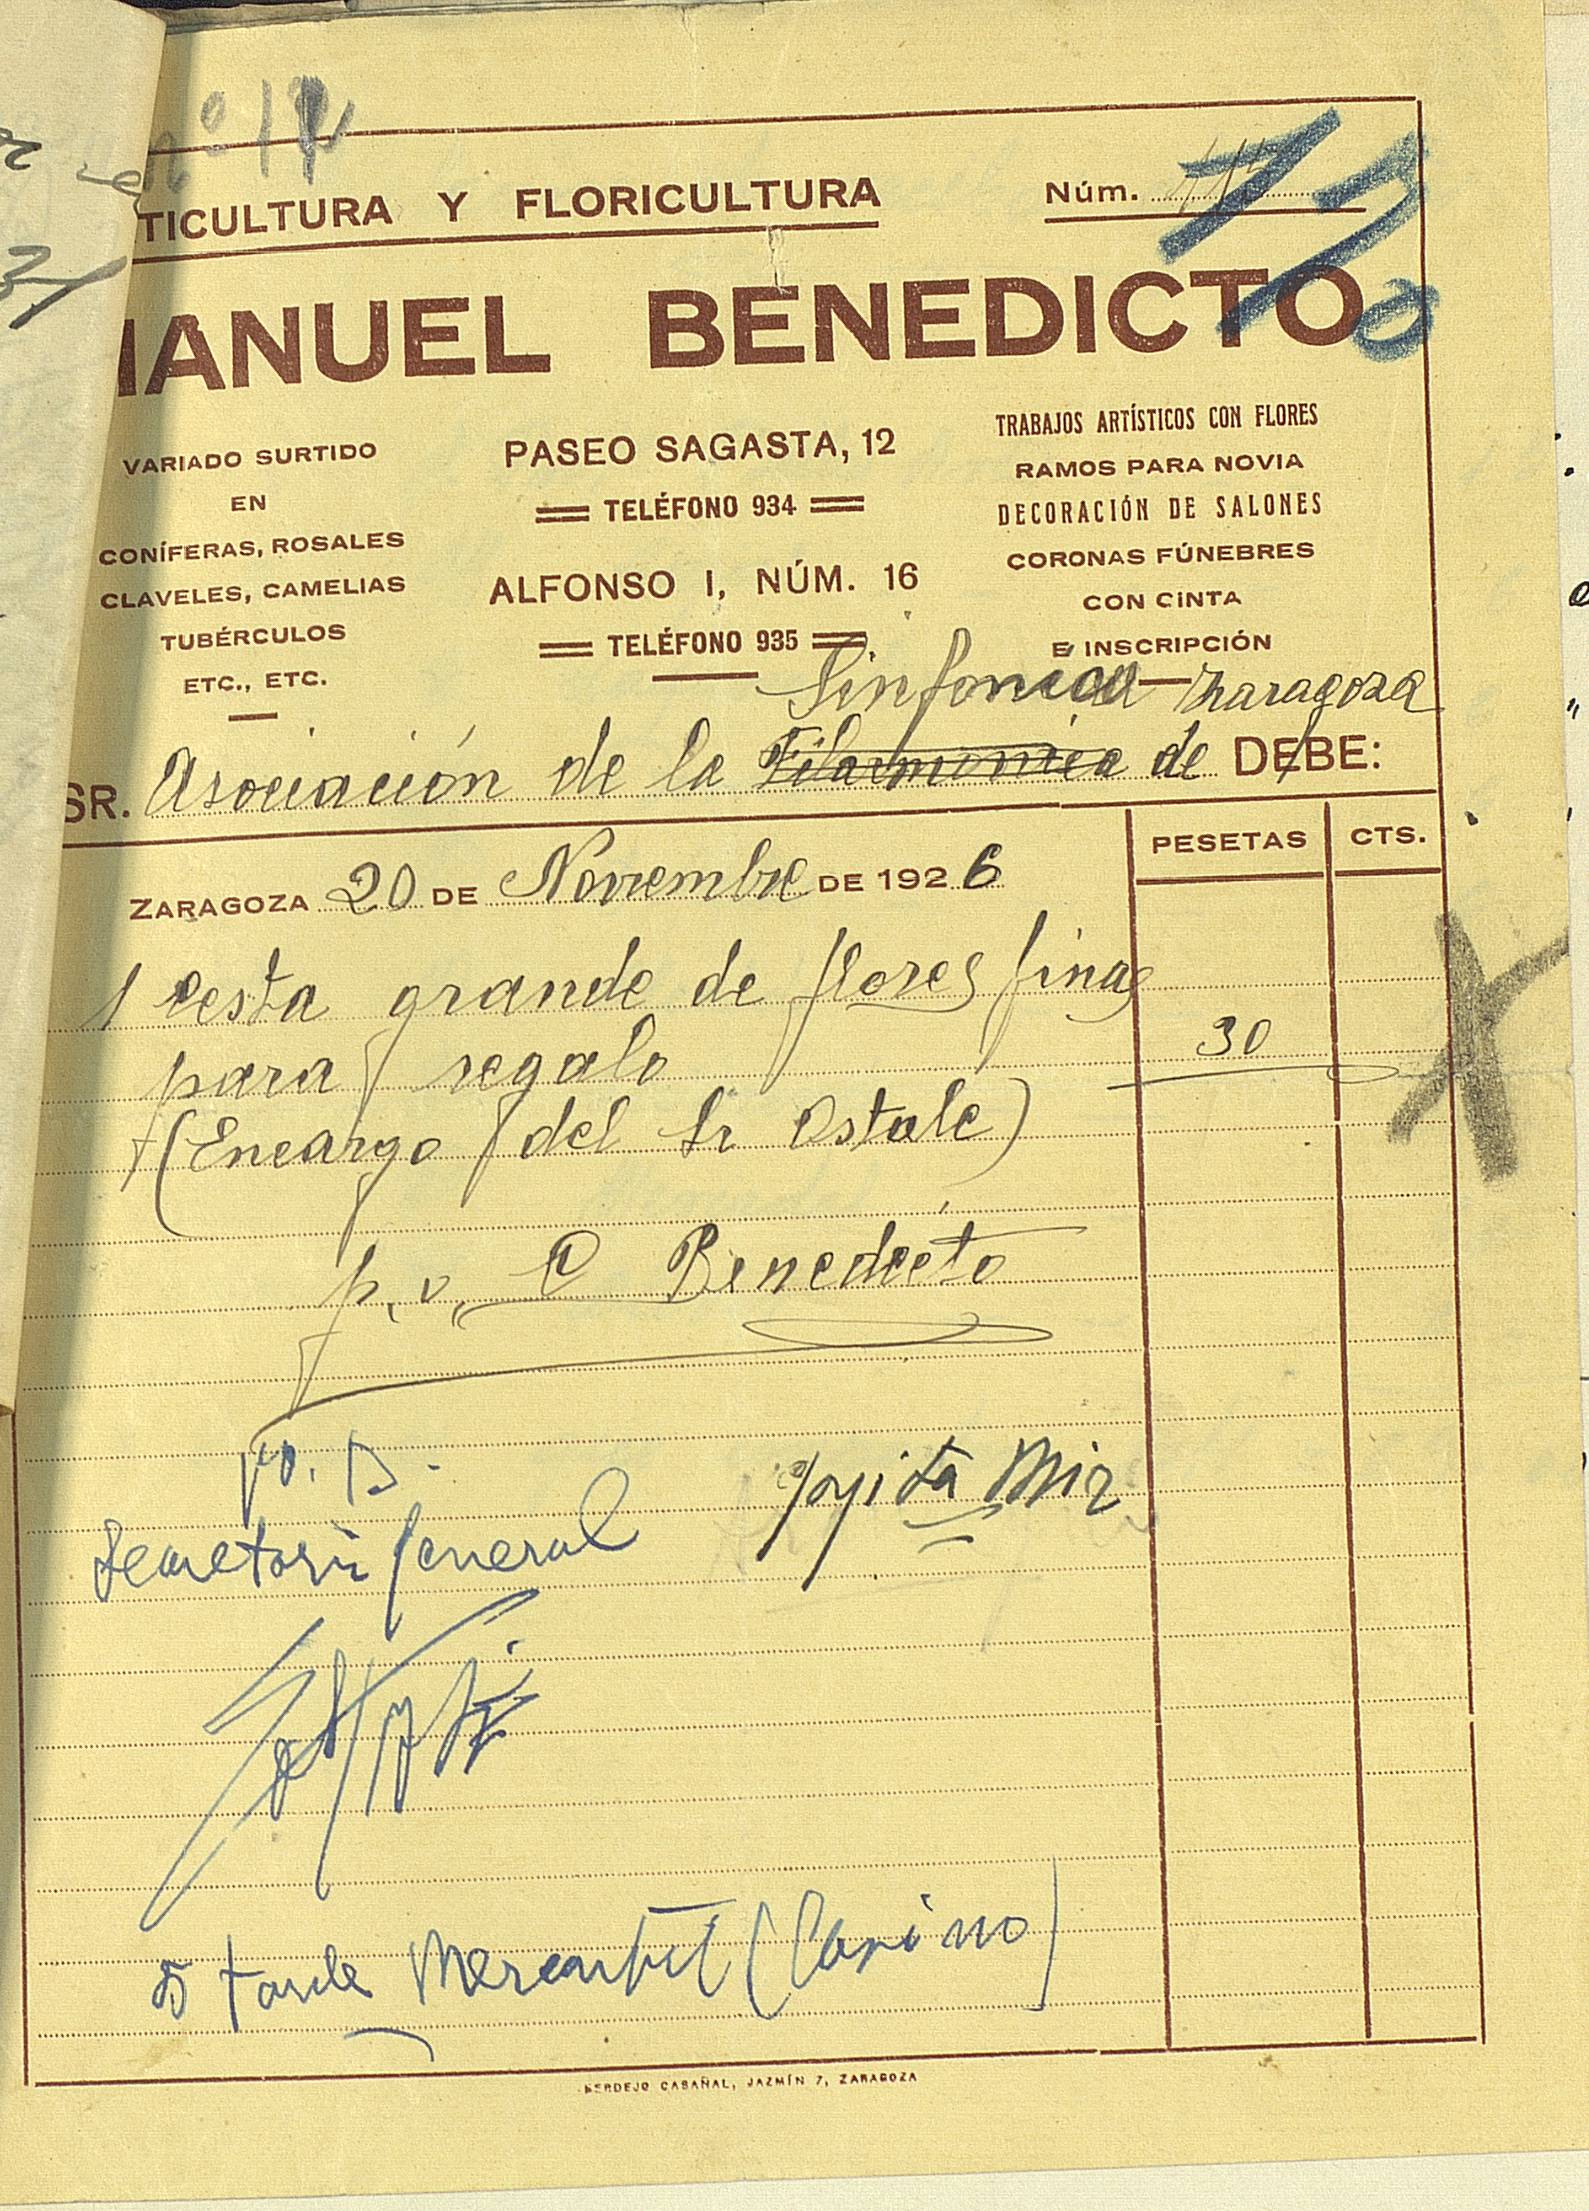 nº 12
TICULTURA Y FLORICULTURA
Núm.
MANUEL BENEDICTO
VARIADO SURTIDO
EN
CONÍFERAS, ROSALES
CLAVELES, CAMELIAS
TUBÉRCULOS
ETC., ETC.
PASEO SAGASTA, 12
TELÉFONO 934
ALFONSO I, NÚM. 16
TELÉFONO 935
TRABAJOS ARTÍSTICOS CON FLORES
RAMOS PARA NOVIA
DECORACIÓN DE SALONES
CORONAS FÚNEBRES
CON CINTA
E INSCRIPCIÓN
Sinfonica Zaragoza
SR. Asociación de la Filarmonica de DEBE:
PESETAS CTS.
ZARAGOZA 20 DE Noviembre DE 1926
1 cesta grande de flores finas
para regalo 30
(Encargo del Sr Ostale)
p. v. C Benedicto
Vo. B.
Secretario General
Pepita Mir
5 tarde Mercantil (Casino)
BERDEJO CASAÑAL, JAZMÍN 7, ZARAGOZA